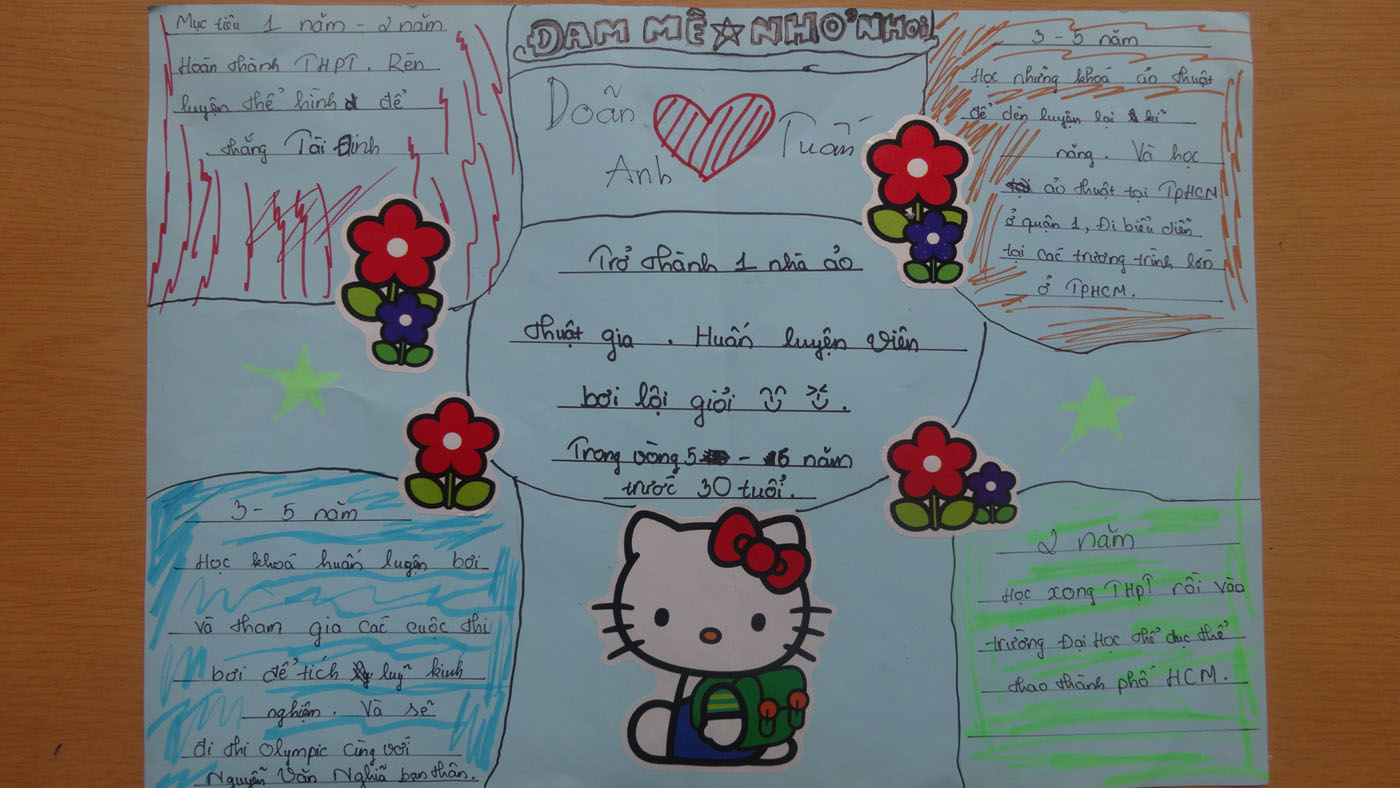 ĐAM MÊ NHỎ NHOI
Doãn Tuấn
Anh
Mục tiêu 1 năm - 2 năm
Hoàn thành THPT. Rèn
luyện thể hình để
thắng Tài Đinh
3 - 5 năm
Học những khoá ảo thuật
để dèn luyện lại kĩ
năng. Và học
ảo thuật tại TPHCM
ở quận 1, Đi biểu diễn
tại các trương trình lớn
ở TPHCM.
Trở thành 1 nhà ảo
thuật gia. Huấn luyện viên
bơi lội giỏi
Trong vòng 5 - 6 năm
trước 30 tuổi.
3 - 5 năm
Học khoá huấn luyện bơi
và tham gia các cuộc thi
bơi để tích luỹ kinh
nghiệm. Và sẽ
đi thi Olympic cùng với
Nguyễn Văn Nghĩa bạn thân.
2 năm
Học xong THPT rồi vào
trường Đại Học thể dục thể
thao thành phố HCM.